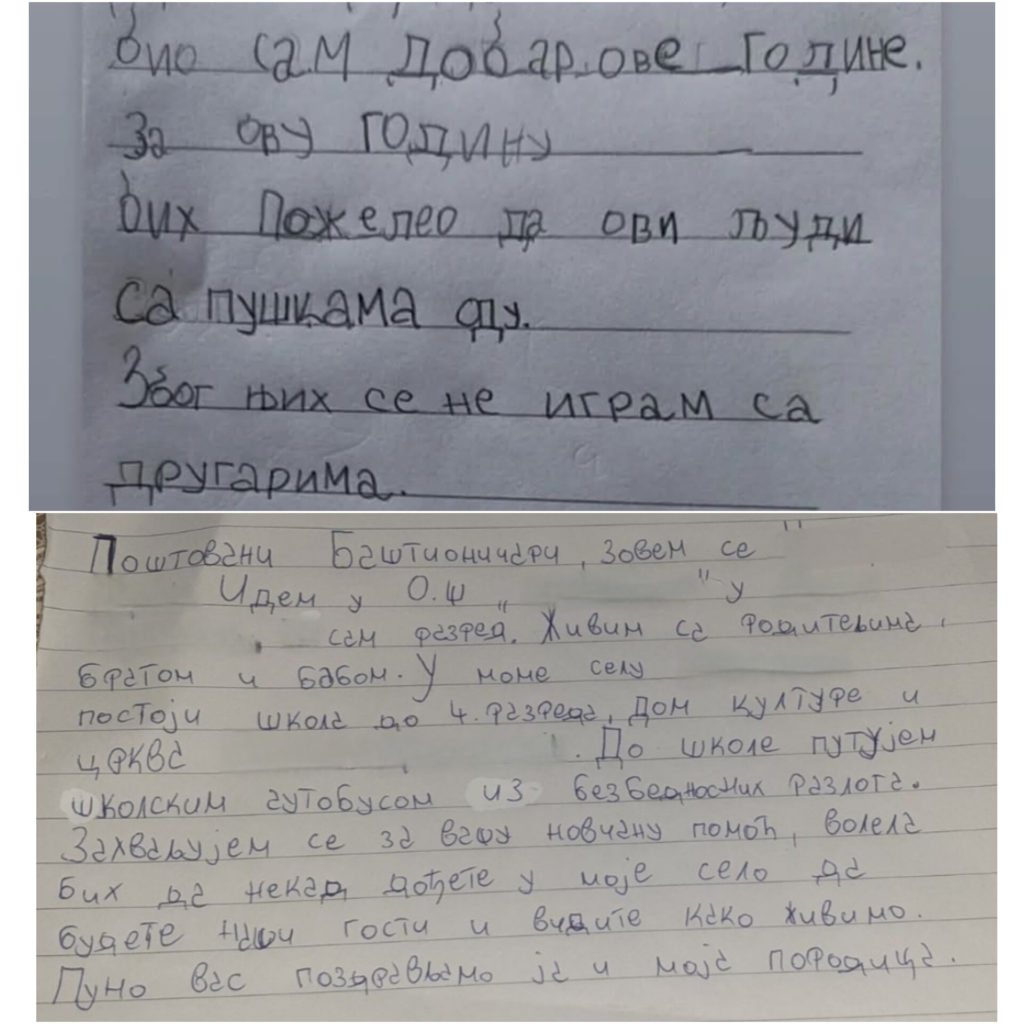 био сам добар ове године.
За ову годину
бих пожелео да ови људи
са пушкама оду.
Због њих се не играм са
другарима.
Поштовани Баштионичари, зовем се "
Идем у О.Ш „ " у
сам разред. Живим са родитељима,
братом и бабом. У моме селу
постоји школа до 4. разреда, Дом културе и
црква . До школе путујем
школским аутобусом из безбедносних разлога.
Захваљујем се за вашу новчану помоћ, волела
бих да некад дођете у моје село да
будете наши гости и видите како живимо.
Пуно вас поздрављамо ја и моја породица.